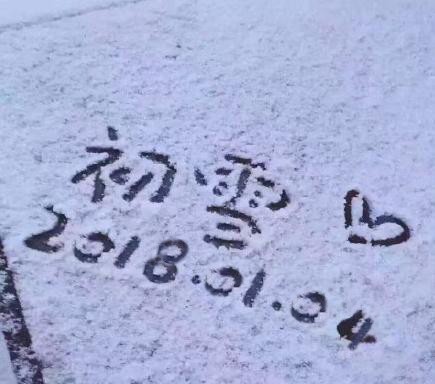 初雪
2018.01.04